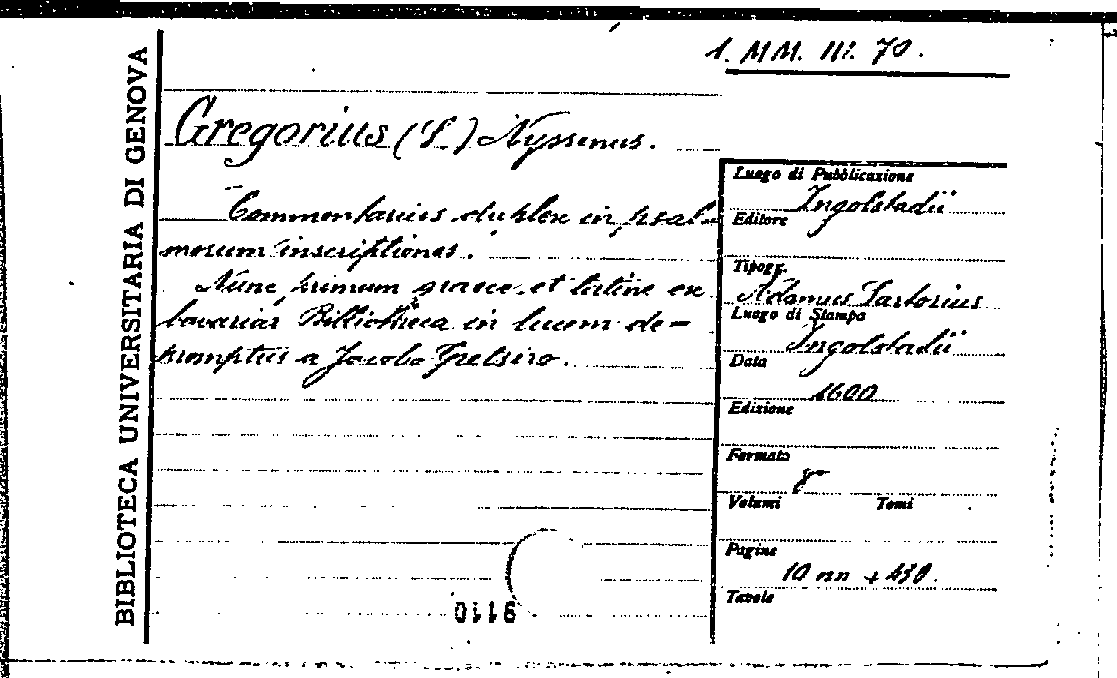 1. MM. III. 70.
BIBLIOTECA UNIVERSITARIA DI GENOVA
Gregorius (S.) Nyssenus.
Commentarius duplex in psal-
morum inscriptiones.
Nunc primum graece et latine ex
bavarias Bibliotheca in lucem de-
promptus a Jacobo Gretsero.
Luogo di Pubblicazione
Ingolstadii
Editore
Tipogr.
Adamus Sartorius
Luogo di Stampa
Ingolstadii
Data
1600
Edizione
Formato
8°
Volumi Tomi
Pagine
10 nn + 430.
Tavole